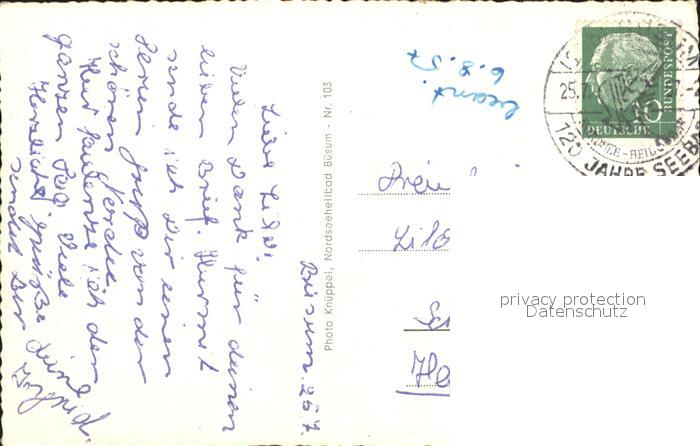 Büsum. 25.7.
Liebe Lilo!
Vielen Dank für deinen
lieben Brief. Hiermit
sende ich Dir einen
Ferien Gruß von der
schönen Nordsee.
Hier faulenze ich den
ganzen Tag. Viele
Herzliche Grüße
sendet Dir
Deine
Photo Knüppel, Nordseeheilbad Büsum - Nr. 103
beantw.
6.8.57
Lilo
10
DEUTSCHE
BUNDESPOST
25.7
125 JAHRE SEEBA
privacy protection
Datenschutz